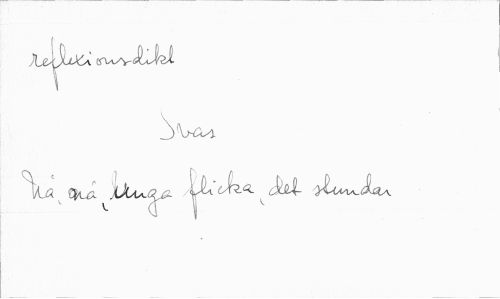 reflexionsdikt
Ivas
Nå, nå, unga flicka, det stundar